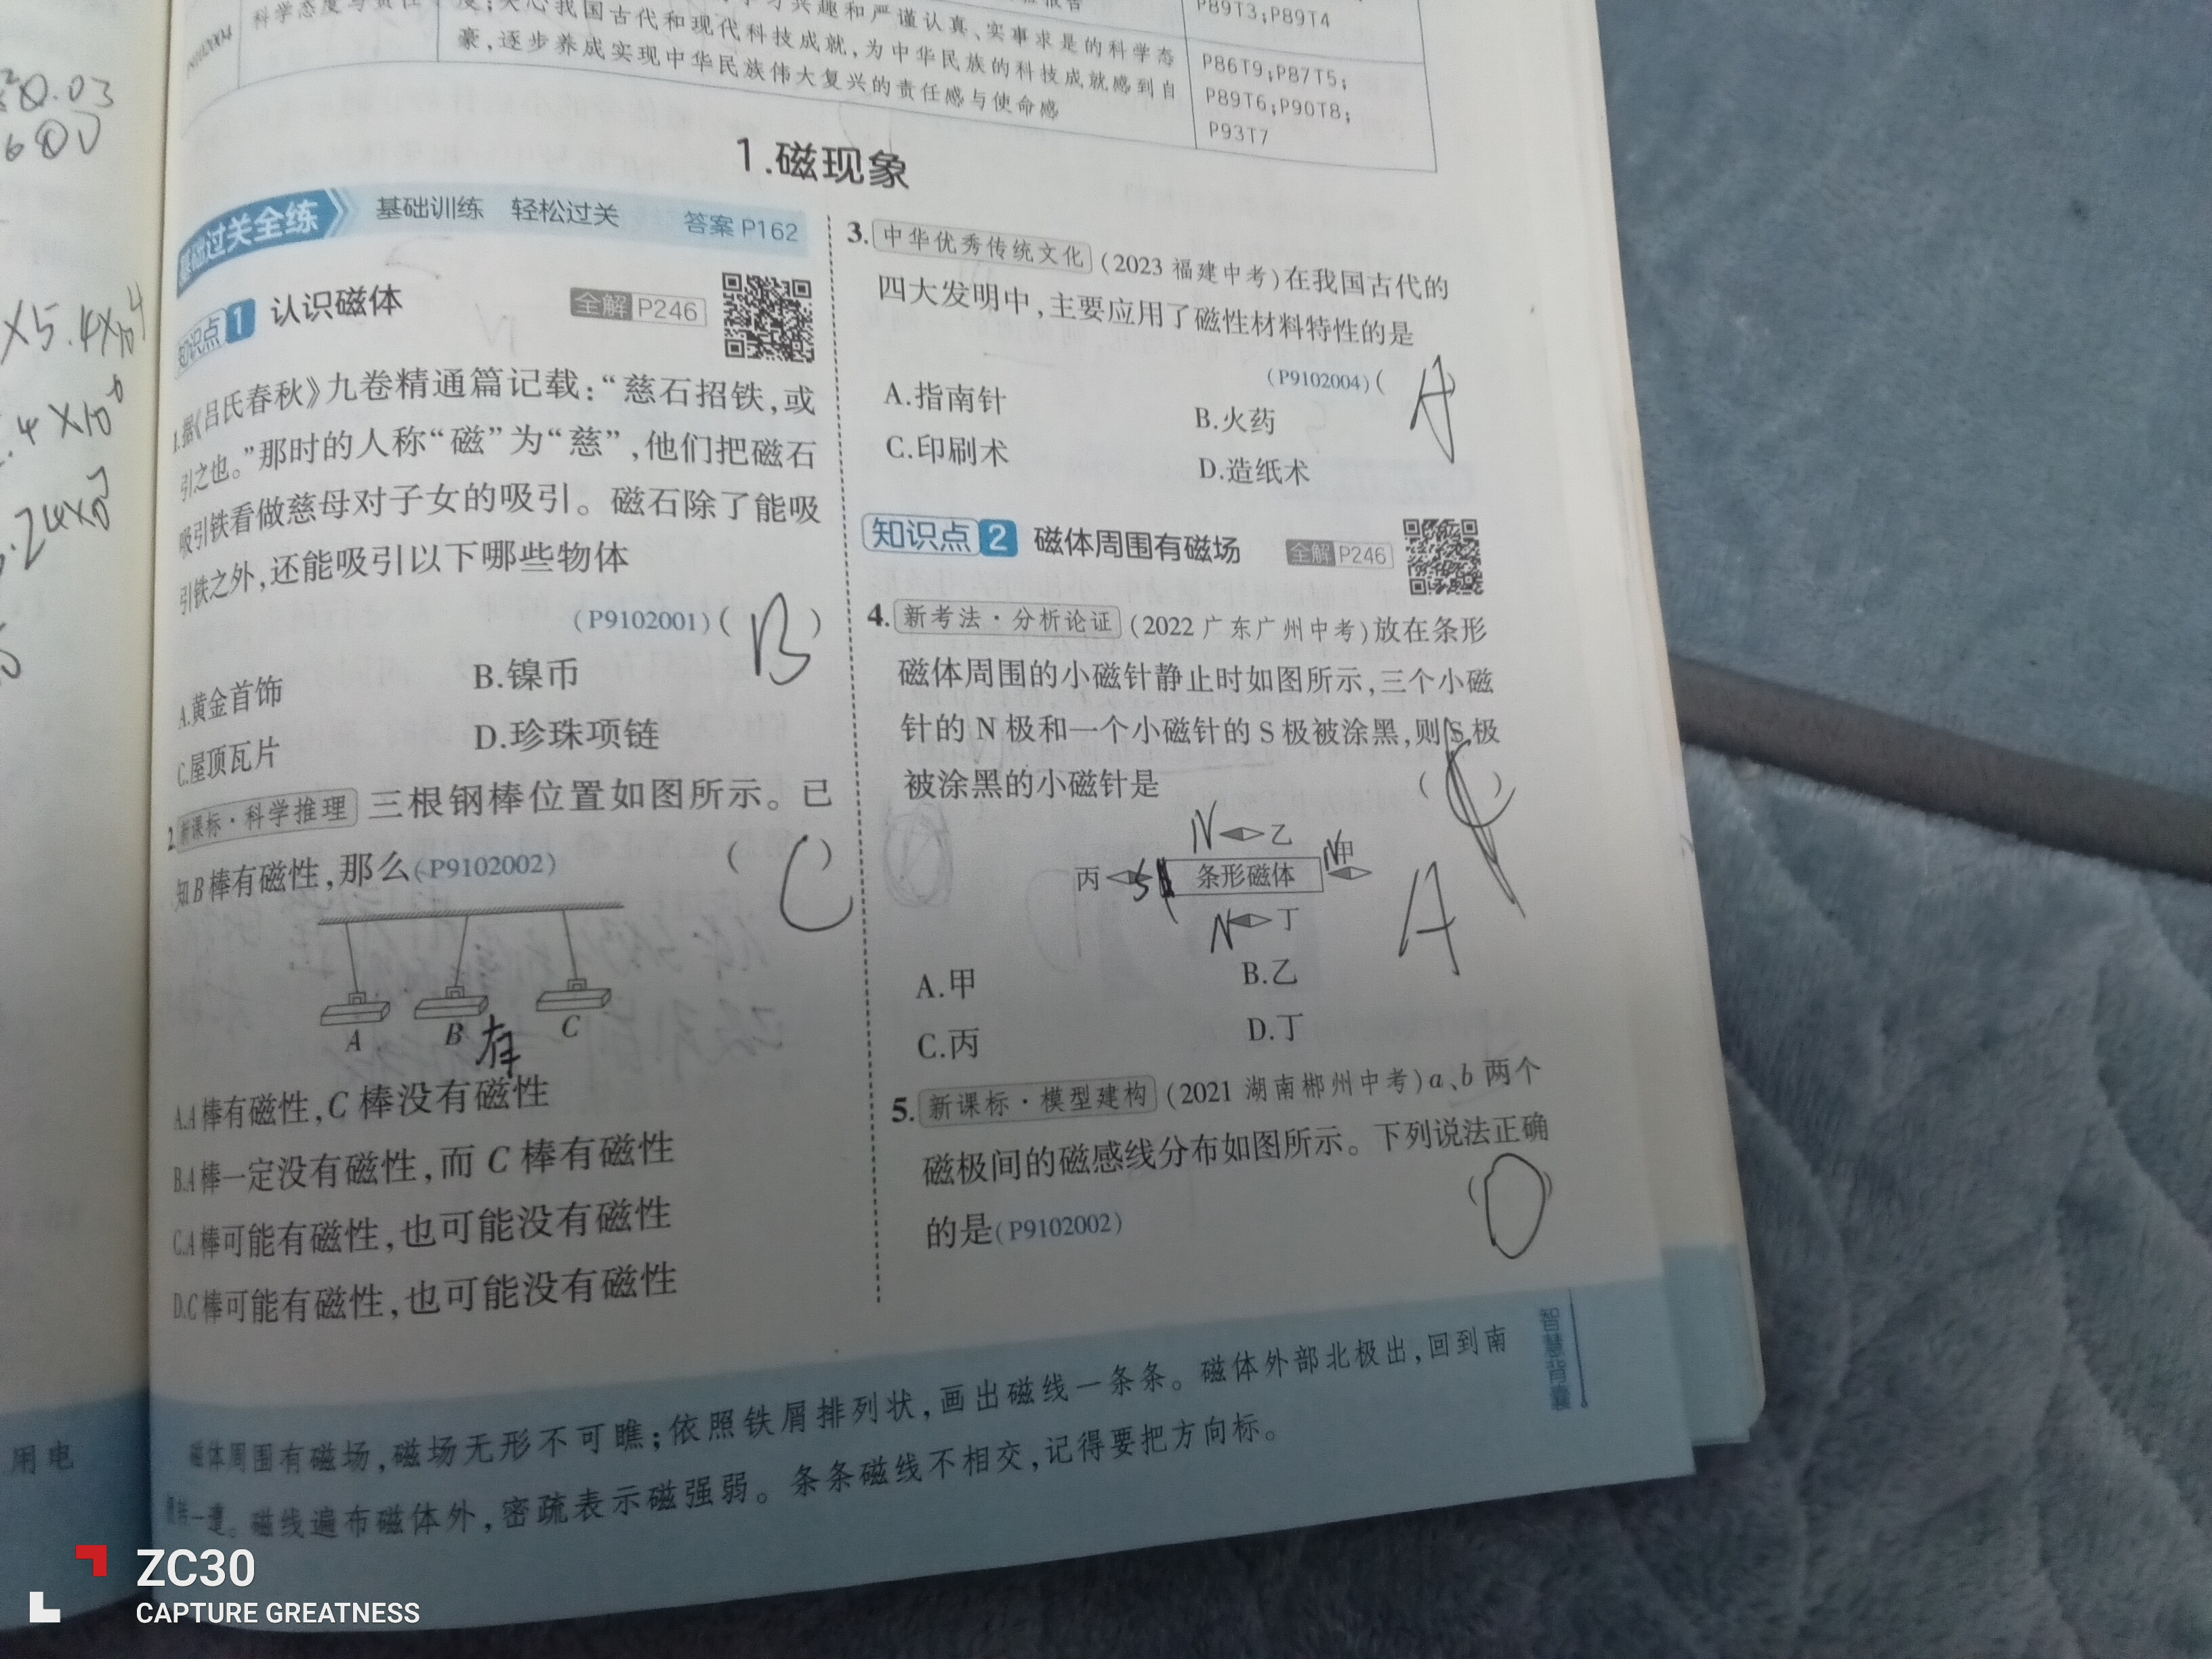 科学态度与责任
豪,逐步养成实现中华民族伟大复兴的责任感与使命感
P89T3;P89T4
P86T9;P87T5;
P89T6;P90T8;
P93T7
1.磁现象
基础过关全练 基础训练 轻松过关 答案 P162
知识点1 认识磁体 全解 P246
1.据《吕氏春秋》九卷精通篇记载:“慈石招铁,或
引之也。”那时的人称“磁”为“慈”,他们把磁石
吸引铁看做慈母对子女的吸引。磁石除了能吸
引铁之外,还能吸引以下哪些物体
(P9102001)( B )
A.黄金首饰 B.镍币
C.屋顶瓦片 D.珍珠项链
2.新课标·科学推理 三根钢棒位置如图所示。已
知B棒有磁性,那么(P9102002) ( C )
A B C
有
A.A棒有磁性,C棒没有磁性
B.A棒一定没有磁性,而C棒有磁性
C.A棒可能有磁性,也可能没有磁性
D.C棒可能有磁性,也可能没有磁性
3.中华优秀传统文化 (2023 福建中考)在我国古代的
四大发明中,主要应用了磁性材料特性的是
(P9102004)( A
A.指南针 B.火药
C.印刷术 D.造纸术
知识点2 磁体周围有磁场 全解 P246
4.新考法·分析论证 (2022 广东广州中考)放在条形
磁体周围的小磁针静止时如图所示,三个小磁
针的N极和一个小磁针的S极被涂黑,则S极
被涂黑的小磁针是 ( )
N 乙
丙 S 条形磁体 N 甲
N 丁
A
A.甲 B.乙
C.丙 D.丁
5.新课标·模型建构 (2021 湖南郴州中考)a、b两个
磁极间的磁感线分布如图所示。下列说法正确
的是(P9102002) ( D )
智慧背囊
磁体周围有磁场,磁场无形不可瞧;依照铁屑排列状,画出磁线一条条。磁体外部北极出,回到南
一遭。磁线遍布磁体外,密疏表示磁强弱。条条磁线不相交,记得要把方向标。
用电
ZC30
CAPTURE GREATNESS